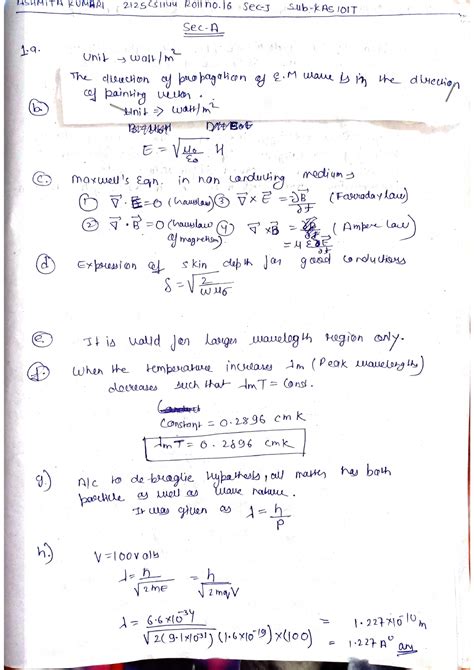 ASHMITA KUMARI, 2125CS1144 Roll no. 16 Sec-J Sub-KAS101T
Sec-A
1.a. Unit → watt/m²
The direction of propagation of E.M wave is in the direction
of pointing vector.
(b) Unit ⇒ watt/m²
E = √(μ₀/ε₀) H
(c) Maxwell's Eqn. in non conducting medium:-
① ∇⃗ · E⃗ = 0 (Gauss law) ③ ∇⃗ × E⃗ = ∂B⃗/∂t (Farraday law)
② ∇⃗ · B⃗ = 0 (Gauss law of magnetism) ④ ∇⃗ × B⃗ = (Ampere law)
(d) Expression of skin depth for good conductors
δ = √(2/ωμσ)
(e) It is valid for larger wavelegth region only.
(f) When the temperature increases λm (Peak wavelegths)
decreases such that λmT = Const.
Constant = 0.2896 cmk
λmT = 0.2896 cmk
g) A/c to de-braglie hypothesis, all matter has both
particle as well as wave nature.
It was given as λ = h/p
h) V = 100 volts
λ = h/√2mE = h/√2mqV
λ = 6.6×10⁻³⁴/√2(9.1×10³¹)(1.6×10⁻¹⁹)×(100) = 1.227×10⁻¹⁰ m
= 1.227 A° Ans.